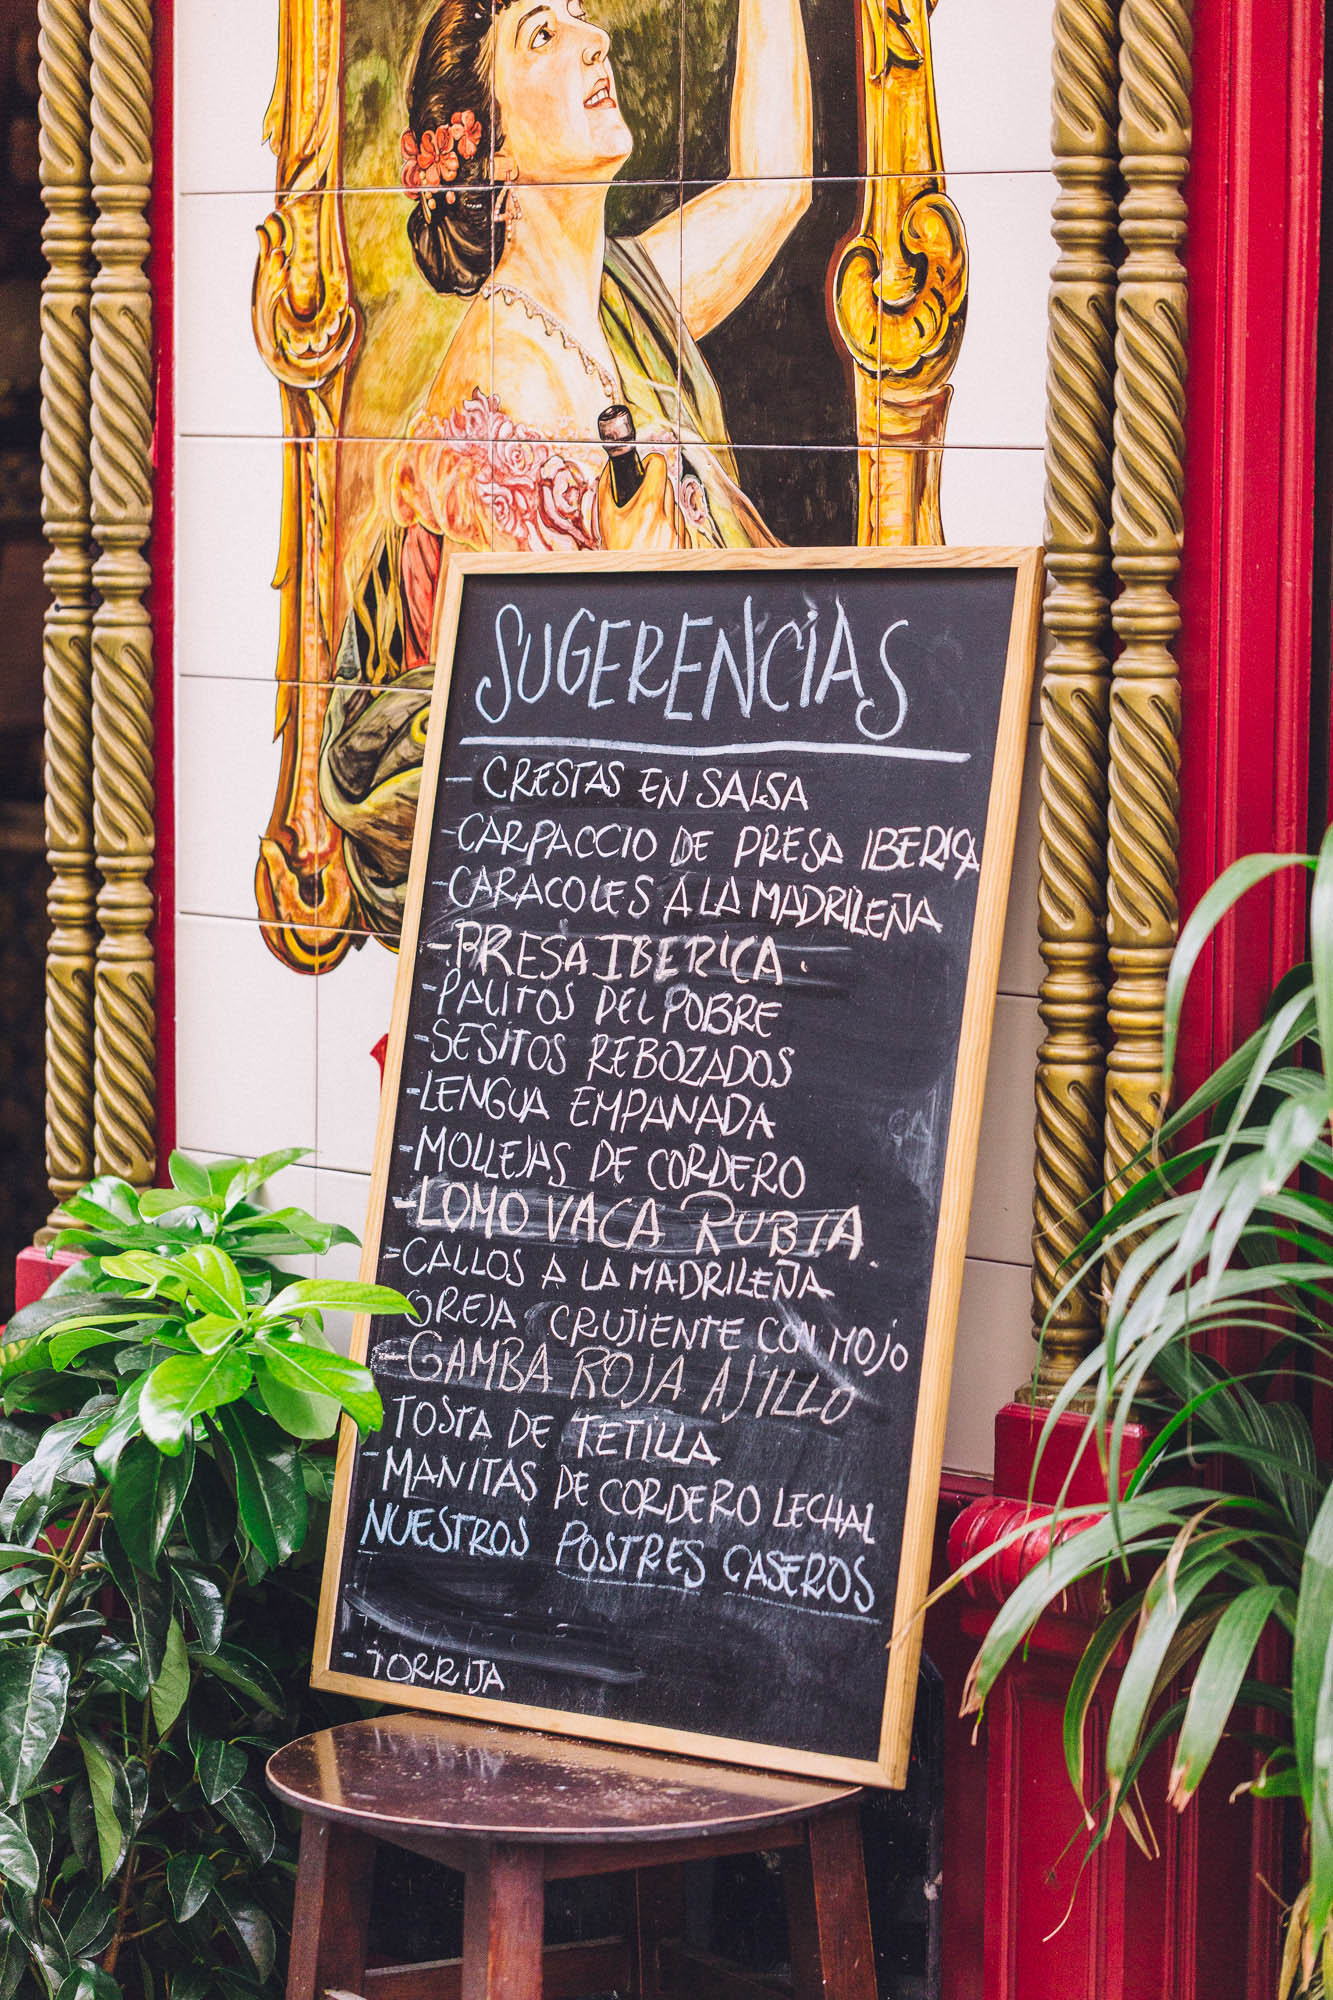 SUGERENCiAS
- CRESTAS EN SALSA
- CARPACCIO DE PRESA IBERICA
- CARACOLES A LA MADRILEÑA
- PRESA IBERICA.
- PALITOS DEL POBRE
- SESITOS REBOZADOS
- LENGUA EMPANADA
- MOLLEJAS DE CORDERO
- LOMO VACA RUBIA.
- CALLOS A LA MADRILEÑA
OREJA CRUJIENTE CON MOJO
- GAMBA ROJA AJILLO
TOSTA DE TETILLA
- MANITAS DE CORDERO LECHAL
NUESTROS POSTRES CASEROS
- TORRIJA